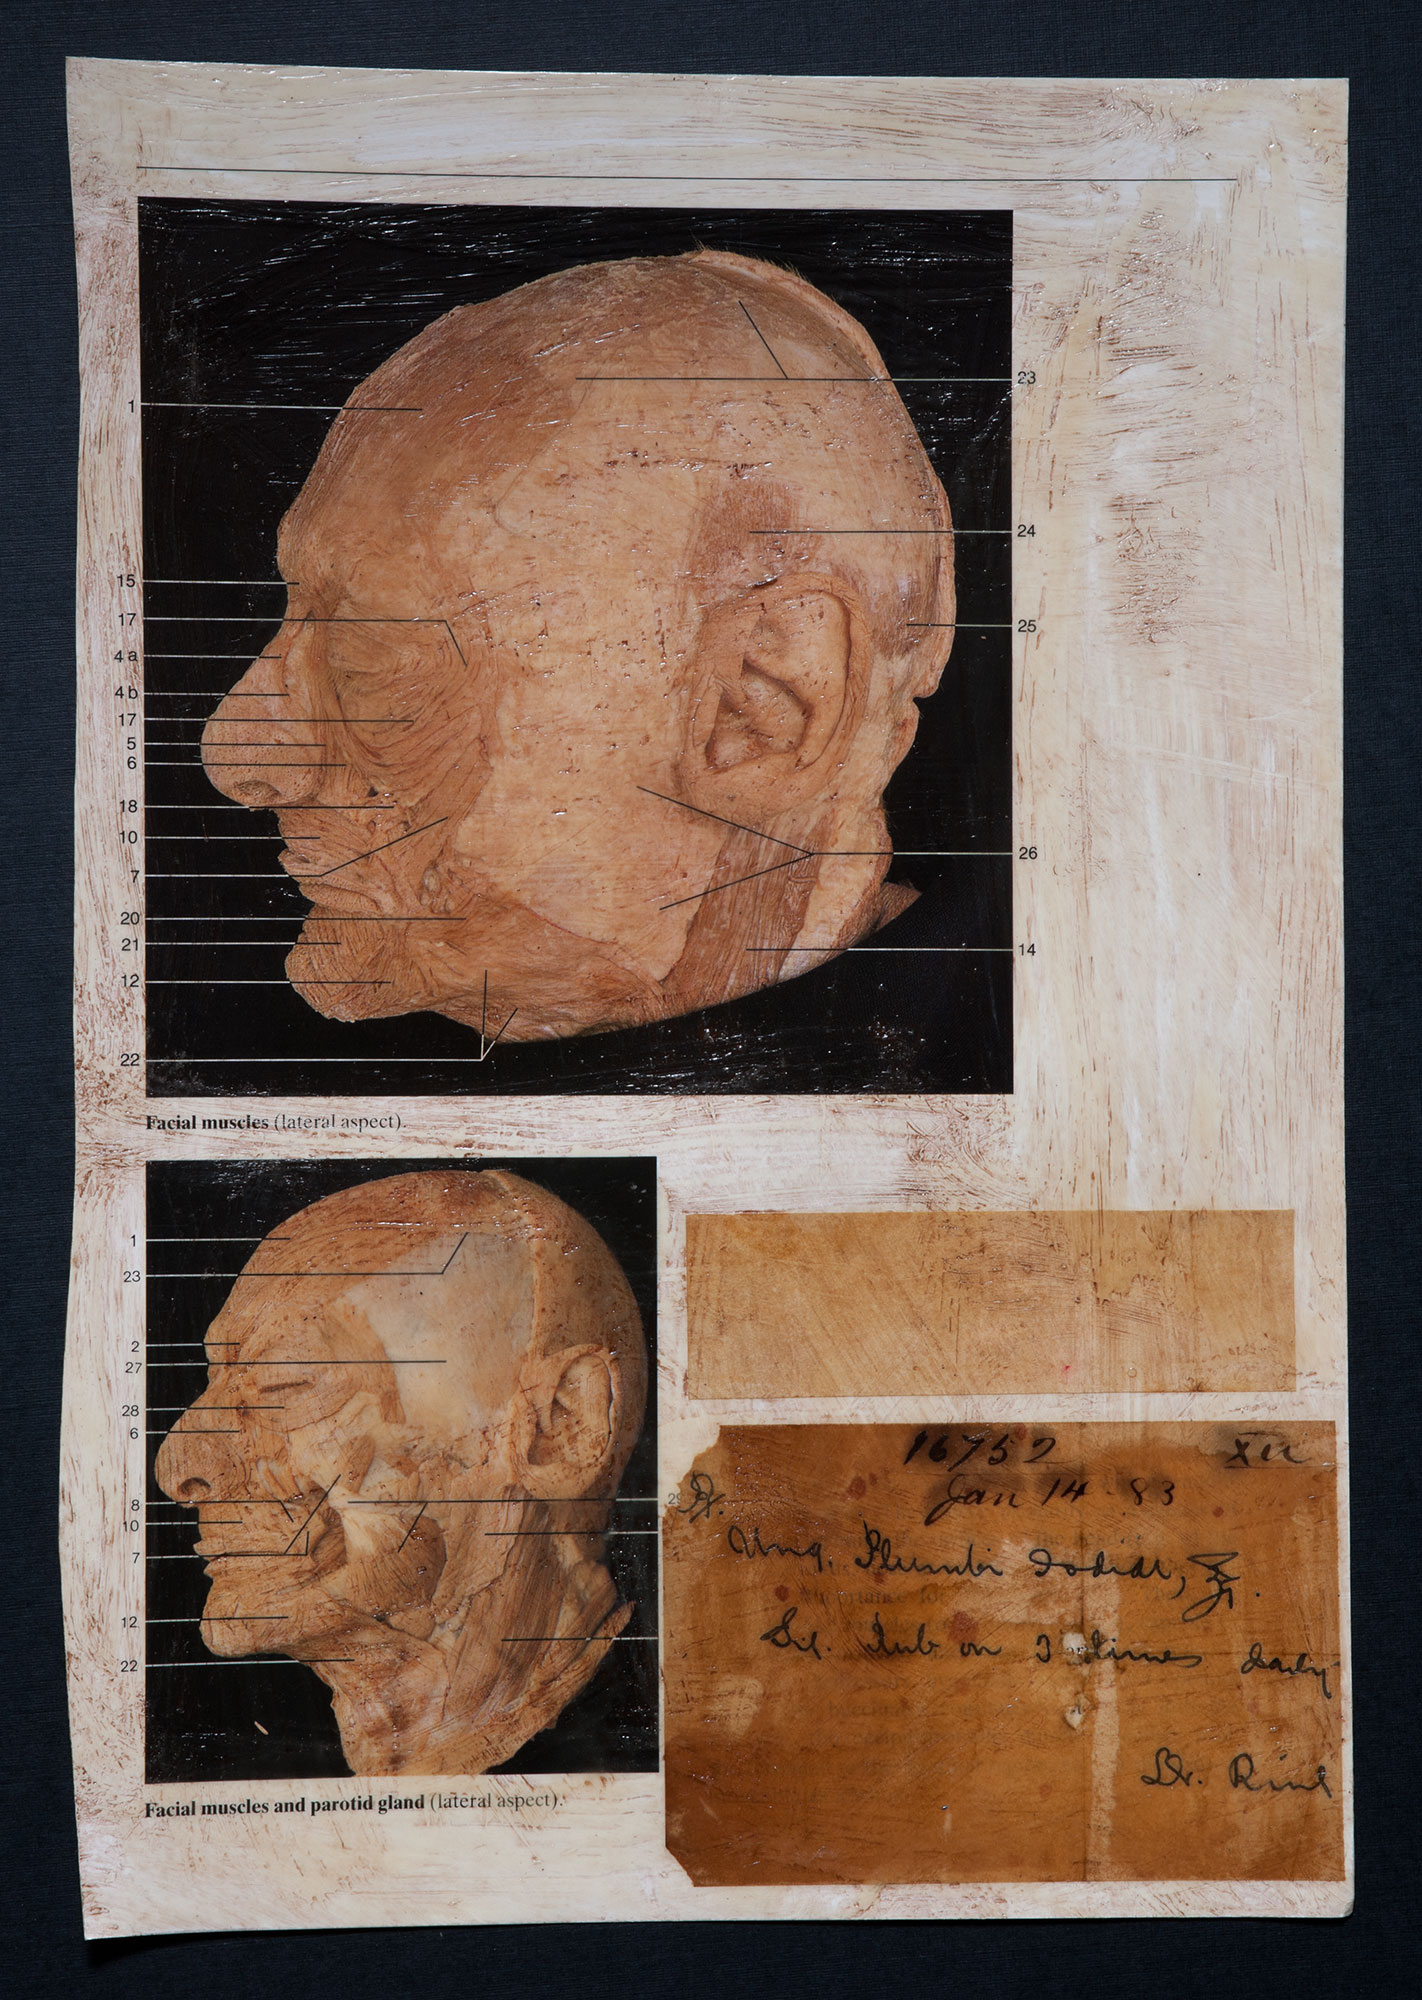 1
15
17
4 a
4 b
17
5
6
18
10
7
20
21
12
22
23
24
25
26
14
Facial muscles (lateral aspect).
1
23
2
27
28
6
8
10
7
12
22
29
Facial muscles and parotid gland (lateral aspect).
16752
Jan 14 - 83
Rx.
Ung. Plumbi Iodide, ℥j.
Sig. Rub on 3 times daily
Dr.